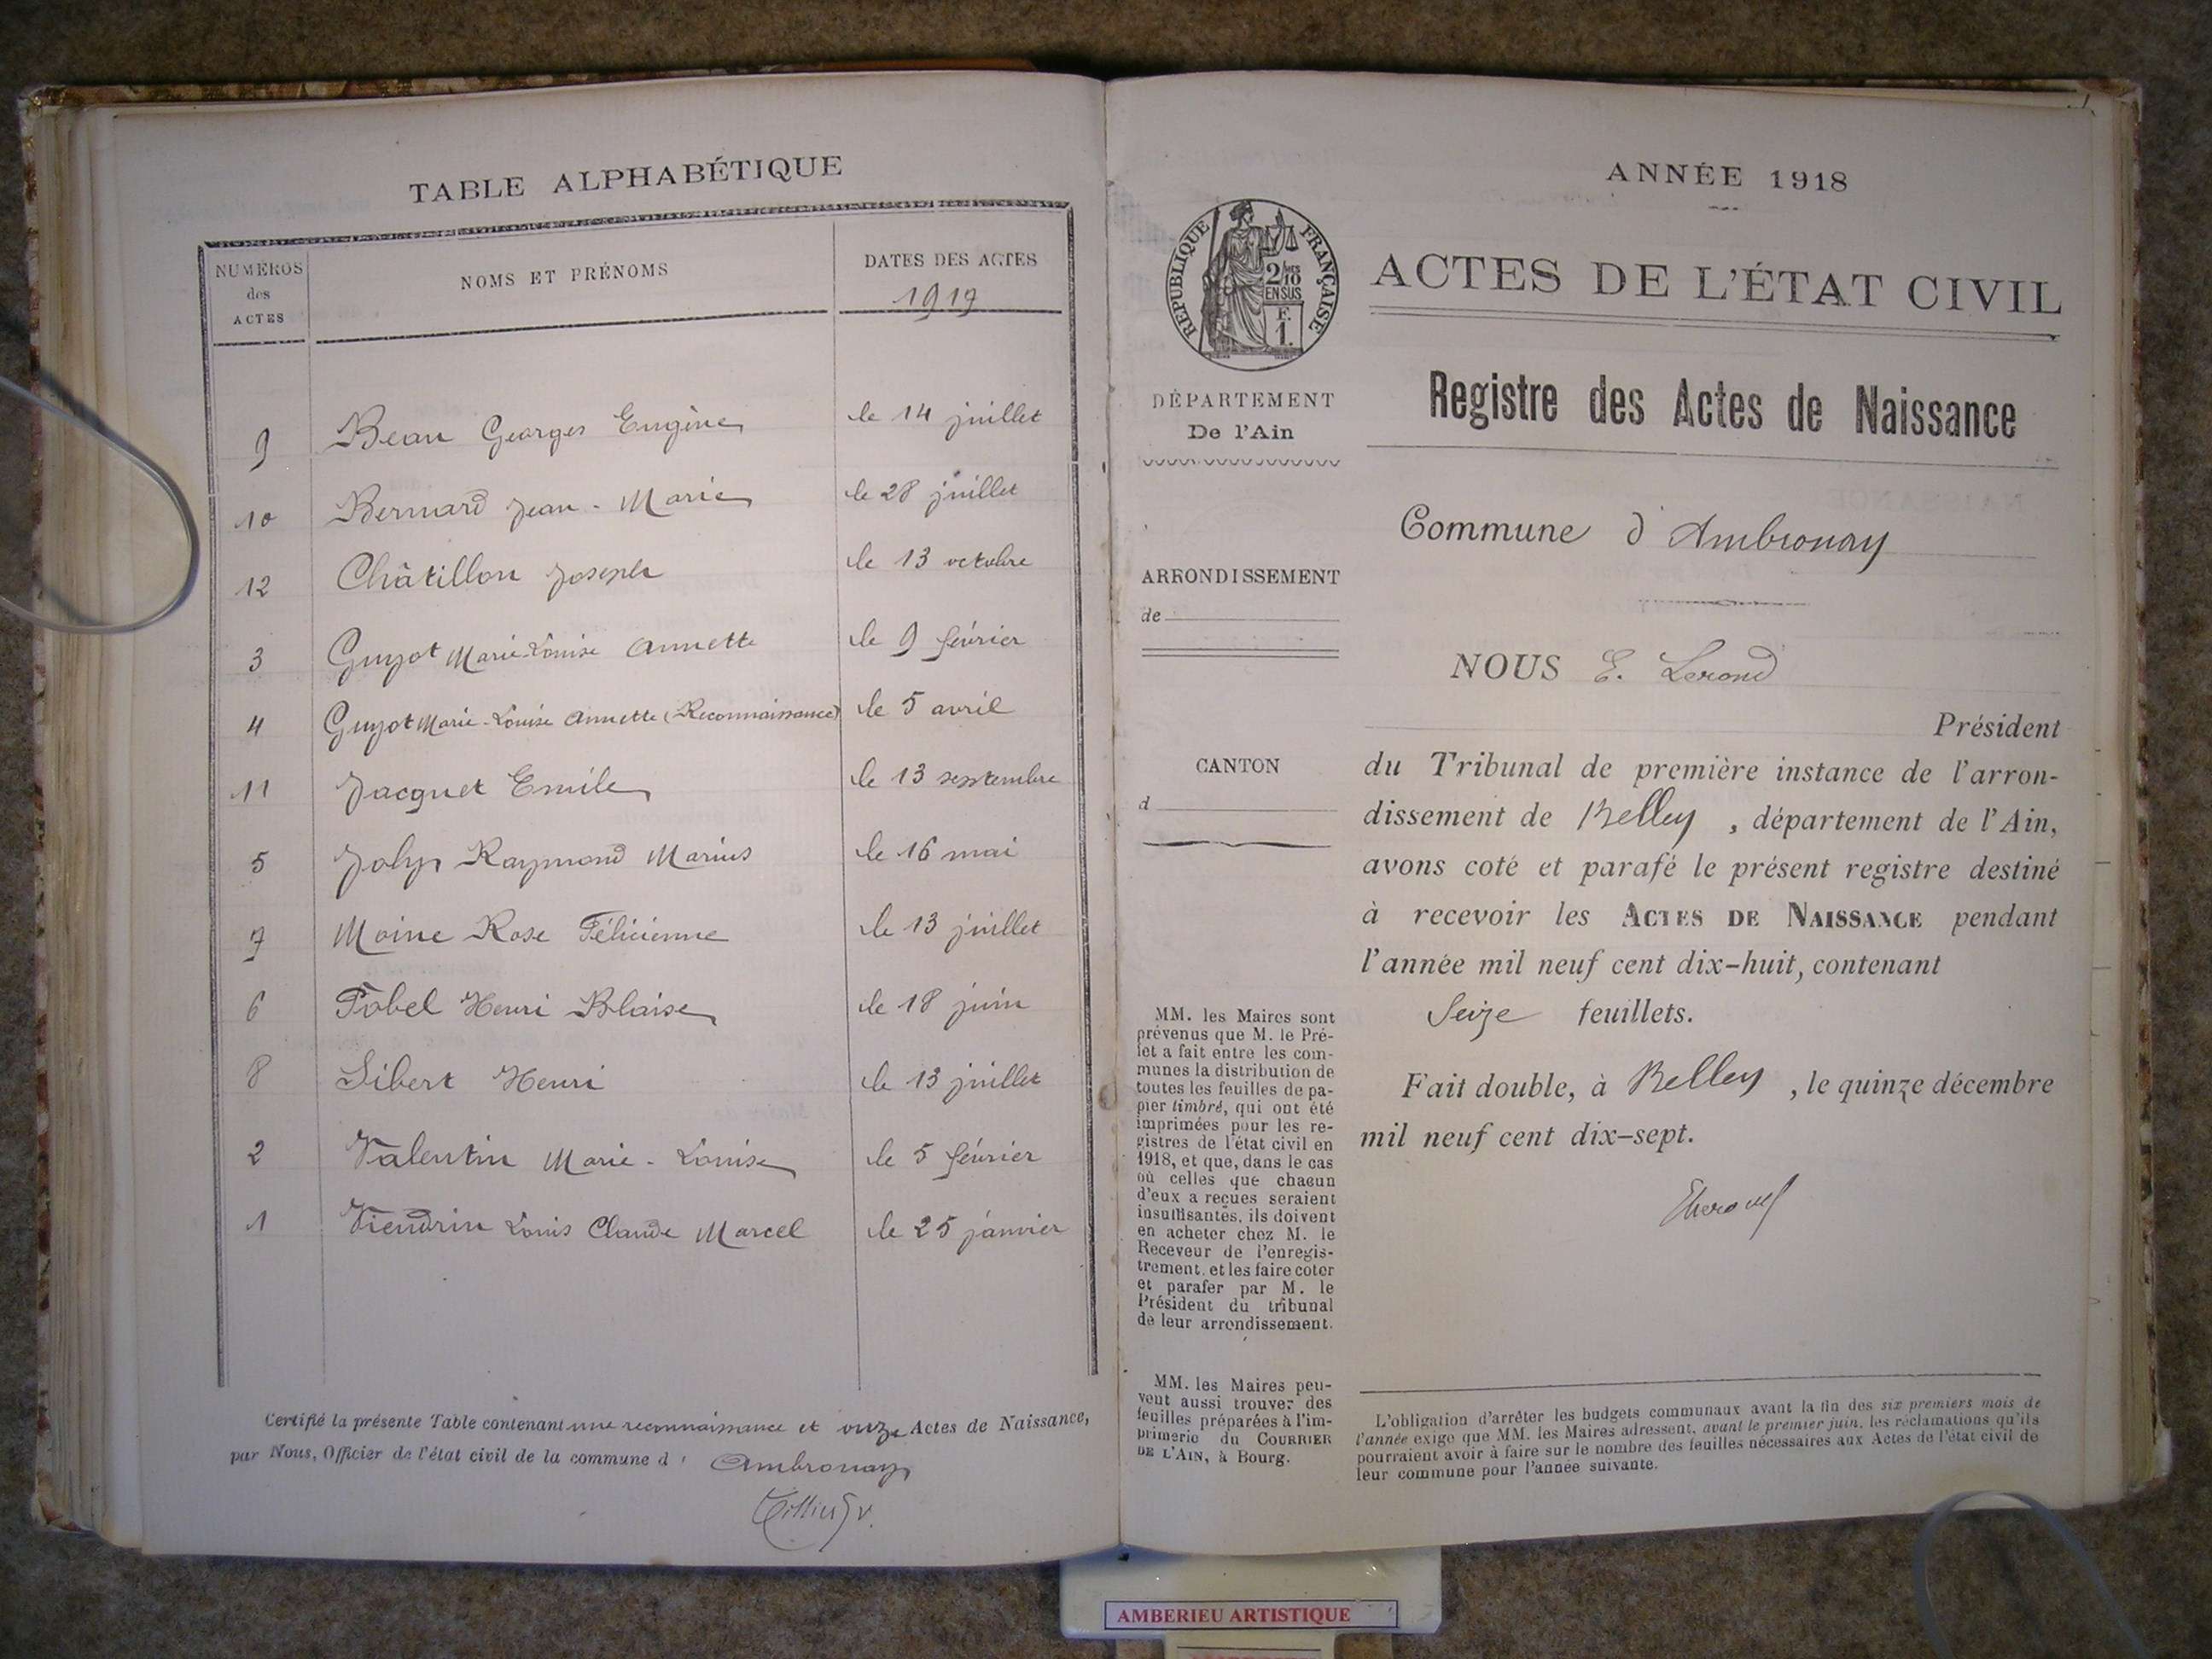 TABLE ALPHABÉTIQUE
NUMÉROS des ACTES
NOMS ET PRÉNOMS
DATES DES ACTES
1917
9 Beau Georges Eugène le 14 juillet
10 Bernard Jean-Marie le 28 juillet
12 Châtillon Joseph le 13 octobre
3 Guyot Marie-Louise Annette le 9 février
4 Guyot Marie-Louise Annette (Reconnaissance) le 5 avril
11 Jacquet Emile le 13 septembre
5 Joly Raymond Marius le 16 mai
7 Moine Rose Félicienne le 13 juillet
6 Pobel Henri Blaise le 18 juin
8 Sibert Henri le 13 juillet
2 Valentin Marie-Louise le 5 février
1 Viendrin Louis Claude Marcel le 25 janvier
Certifié la présente Table contenant une reconnaissance et onze Actes de Naissance,
par Nous, Officier de l'état civil de la commune d' Ambronay
1
ANNÉE 1918
RÉPUBLIQUE FRANÇAISE
2/10
EN SUS
F.
1.
ACTES DE L'ÉTAT CIVIL
DÉPARTEMENT
De l'Ain
ARRONDISSEMENT
de
CANTON
d
MM. les Maires sont
prévenus que M. le Pré-
fet a fait entre les com-
munes la distribution de
toutes les feuilles de pa-
pier timbré, qui ont été
imprimées pour les re-
gistres de l'état civil en
1918, et que, dans le cas
où celles que chacun
d'eux a reçues seraient
insuffisantes, ils doivent
en acheter chez M. le
Receveur de l'enregis-
trement, et les faire coter
et parafer par M. le
Président du tribunal
de leur arrondissement.
MM. les Maires peu-
vent aussi trouver des
feuilles préparées à l'im-
primerie du COURRIER
DE L'AIN, à Bourg.
Registre des Actes de Naissance
Commune d'Ambronay
NOUS E. Lerond
Président
du Tribunal de première instance de l'arron-
dissement de Belley, département de l'Ain,
avons coté et parafé le présent registre destiné
à recevoir les ACTES DE NAISSANCE pendant
l'année mil neuf cent dix-huit, contenant
Seize feuillets.
Fait double, à Belley, le quinze décembre
mil neuf cent dix-sept.
L'obligation d'arrêter les budgets communaux avant la fin des six premiers mois de
l'année exige que MM. les Maires adressent, avant le premier juin, les réclamations qu'ils
pourraient avoir à faire sur le nombre des feuilles nécessaires aux Actes de l'état civil de
leur commune pour l'année suivante.
AMBERIEU ARTISTIQUE